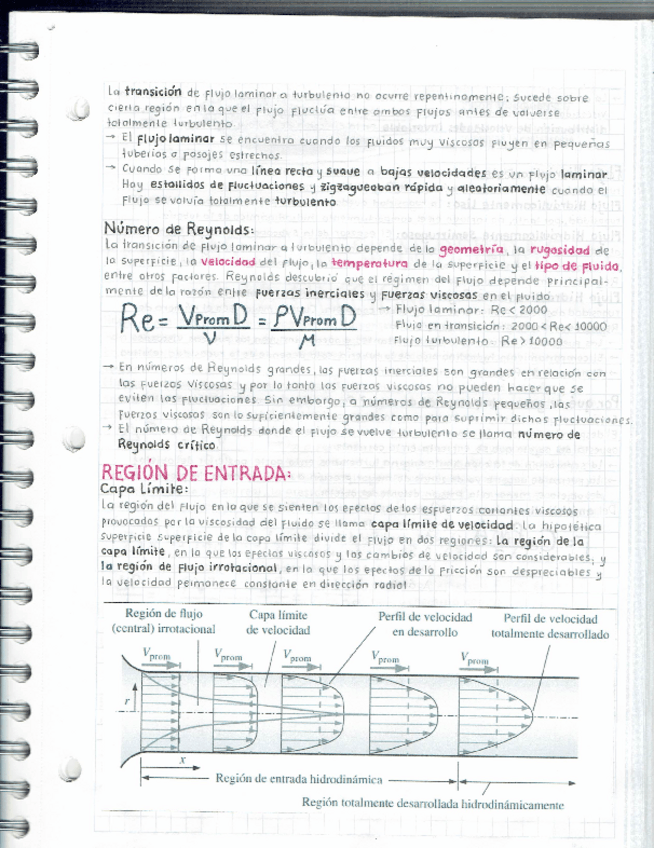 La transición de flujo laminar a turbulento no ocurre repentinamente; Sucede sobre
cierta región en la que el flujo fluctúa entre ambos flujos antes de volverse
totalmente turbulento.
→ El flujo laminar se encuentra cuando los fluidos muy viscosos fluyen en pequeñas
tuberías o pasajes estrechos.
→ Cuando se forma una línea recta y suave a bajas velocidades es un flujo laminar
Hay estallidos de fluctuaciones y zigzagueaban rápida y aleatoriamente cuando el
flujo se volvía totalmente turbulento
Número de Reynolds:
La transición de flujo laminar a turbulento depende de la geometría, la rugosidad de
la superficie, la velocidad del flujo, la temperatura de la superficie y el tipo de fluido,
entre otros factores. Reynolds descubrió que el régimen del flujo depende principal-
mente de la razón entre fuerzas inerciales y fuerzas viscosas en el fluido
Re = VProm D / ν = ρVProm D / μ
→ Flujo laminar: Re < 2000
Flujo en transición: 2000 < Re < 10000
Flujo turbulento: Re > 10000
→ En números de Reynolds grandes, las fuerzas inerciales son grandes en relación con
las fuerzas viscosas y por lo tanto las fuerzas viscosas no pueden hacer que se
eviten las fluctuaciones. Sin embargo, a números de Reynolds pequeños, las
fuerzas viscosas son lo suficientemente grandes como para suprimir dichas fluctuaciones.
→ El número de Reynolds donde el flujo se vuelve turbulento se llama número de
Reynolds crítico.
REGIÓN DE ENTRADA:
Capa Límite:
La región del flujo en la que se sienten los efectos de los esfuerzos cortantes viscosos
provocados por la viscosidad del fluido se llama capa límite de velocidad. La hipotética
superficie superficie de la capa límite divide el flujo en dos regiones: La región de la
capa límite, en la que los efectos viscosos y los cambios de velocidad son considerables, y
la región de flujo irrotacional, en la que los efectos de la fricción son despreciables y
la velocidad permanece constante en dirección radial
Región de flujo
(central) irrotacional
Capa límite
de velocidad
Perfil de velocidad
en desarrollo
Perfil de velocidad
totalmente desarrollado
Vprom Vprom Vprom Vprom Vprom
r
x
Región de entrada hidrodinámica
Región totalmente desarrollada hidrodinámicamente